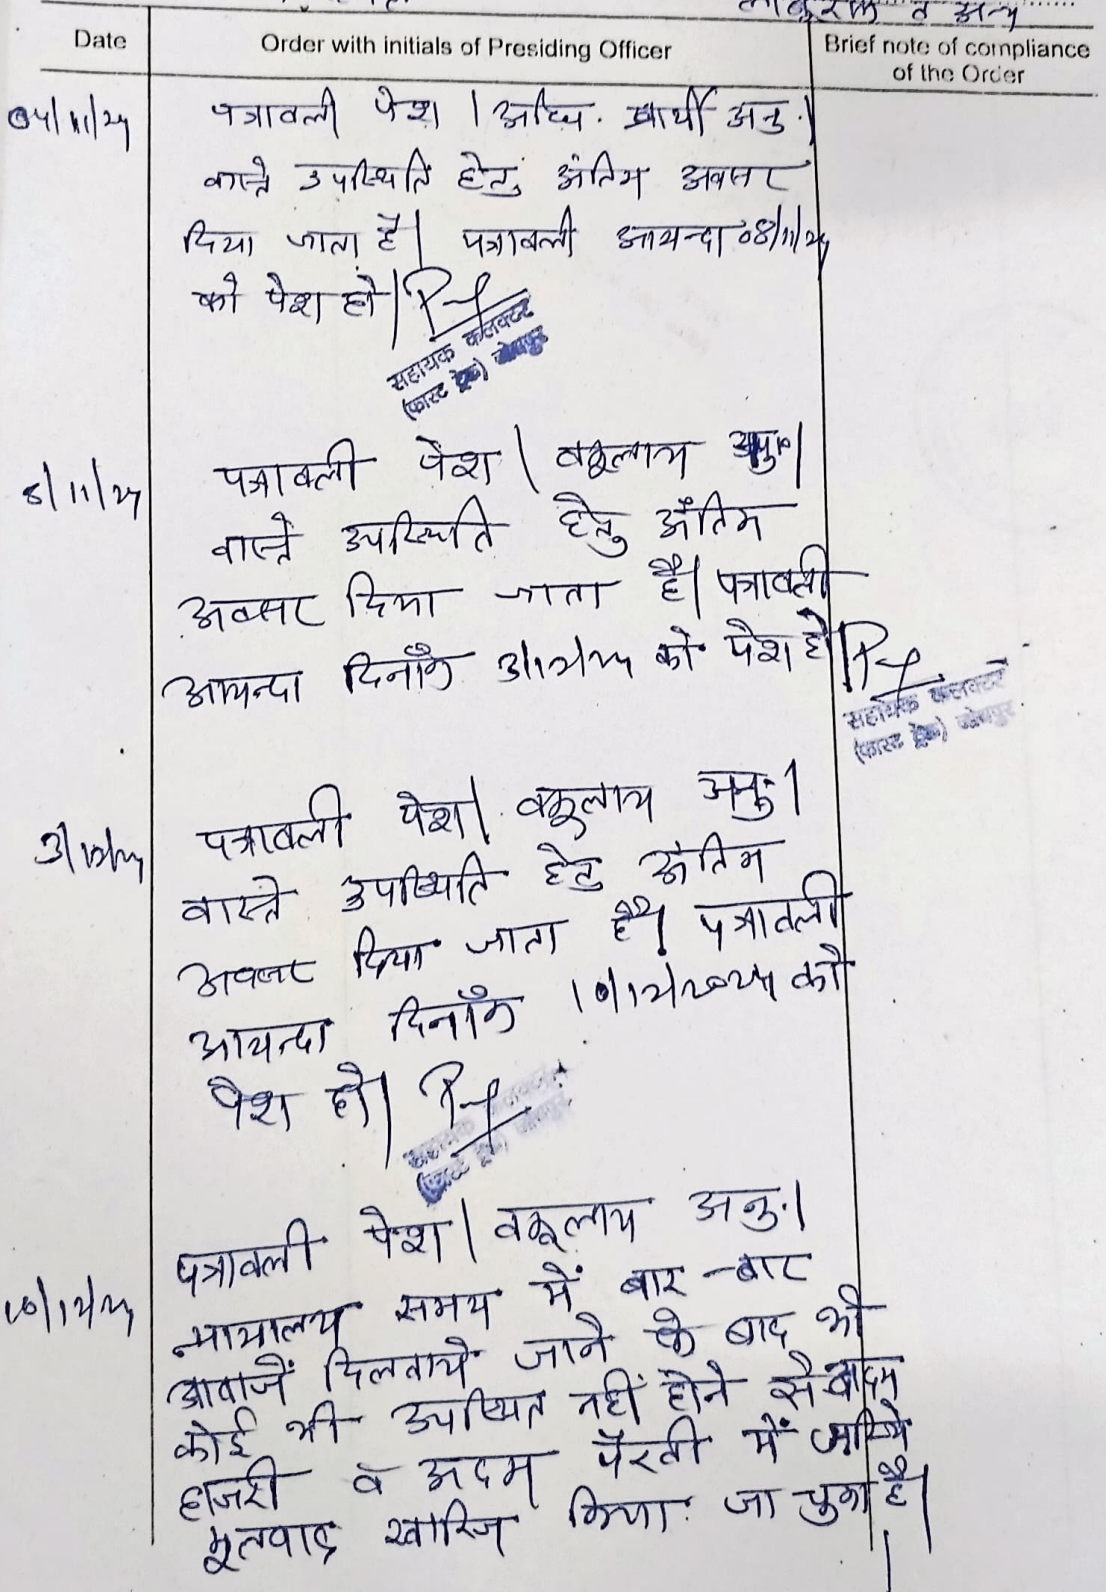 व अन्य
Date
Order with initials of Presiding Officer
Brief note of compliance
of the Order
04/11/24
पत्रावली पेश । अधि. प्रार्थी अनु.।
वास्ते उपस्थिति हेतु अंतिम अवसर
दिया जाता है। पत्रावली आयन्दा 08/11/24
को पेश हो।
सहायक कलक्टर
(फास्ट ट्रेक) जोधपुर
8/11/24
पत्रावली पेश । वकूलाय अनु.।
वास्ते उपस्थिति हेतु अंतिम
अवसर दिया जाता है। पत्रावली
आयन्दा दिनाँक 3/12/24 को पेश हो।
सहायक कलक्टर
(फास्ट ट्रेक) जोधपुर
3/12/24
पत्रावली पेश। वकूलाय अनु.।
वास्ते उपस्थिति हेतु अंतिम
अवसर दिया जाता है। पत्रावली
आयन्दा दिनाँक 10/12/2024 को
पेश हो।
10/12/24
पत्रावली पेश । वकूलाय अनु.।
न्यायालय समय में बार-बार
आवाजें दिलवाये जाने के बाद भी
कोई भी उपस्थित नहीं होने से
हाजरी व अदम पैरवी में
मूलवाद खारिज किया जा चुका है।